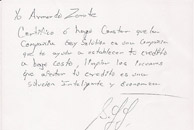 Yo Armando Zarate
Certifico o hago Constar que la
Compañia Key Solution es una Compañia
que te ayuda a establecer tu credito
a bajo costo, limpiar los errores
que afectan tu credito es una
solucion Inteligente y Economica